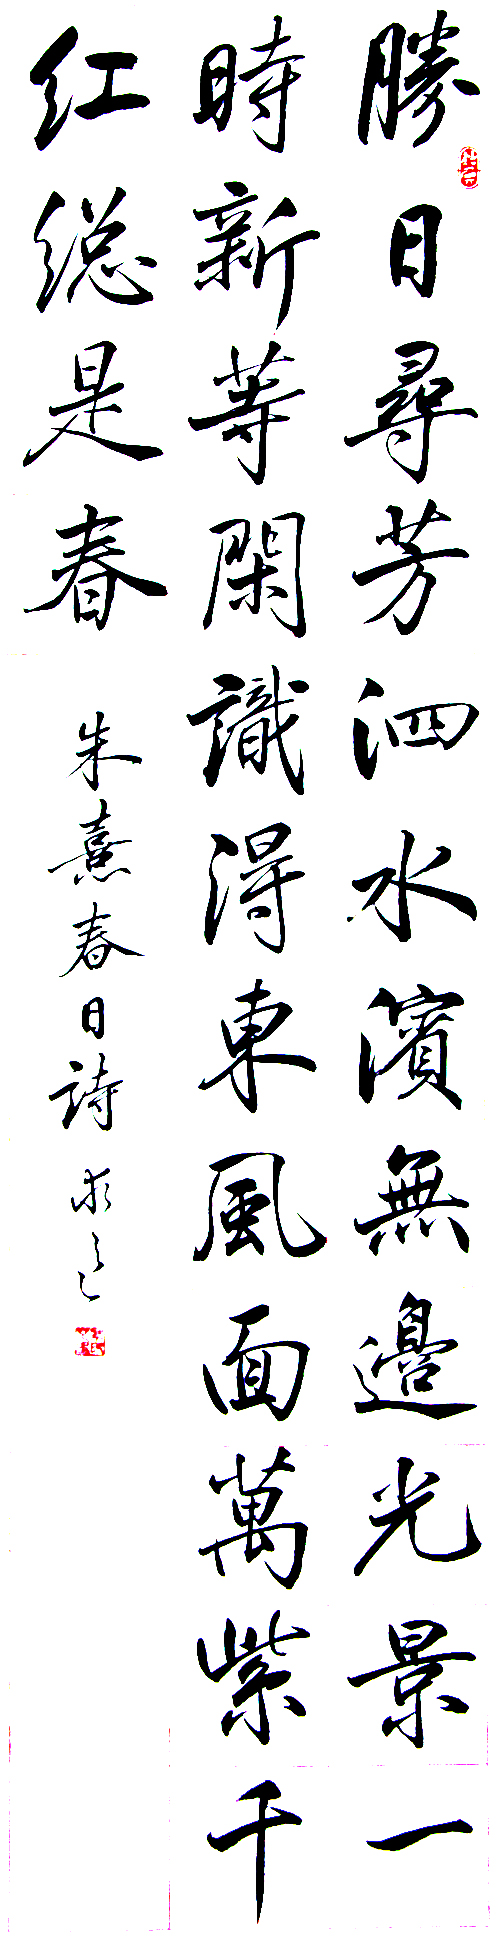 勝日尋芳泗水濱無邊光景一
時新等閑識得東風面萬紫千
红総是春
朱熹春日詩